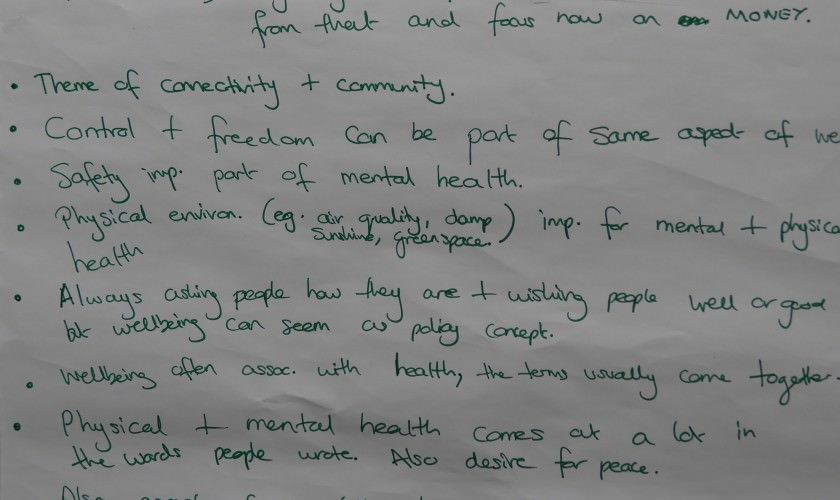 from that and focus now on MONEY.
• Theme of connectivity + community.
• Control + freedom can be part of same aspect of we
• Safety imp. part of mental health.
• Physical environ. (eg. air quality, damp) imp. for mental + physica
sunshine, greenspace.
health
• Always asking people how they are + wishing people well or good
but wellbeing can seem as policy concept.
• Wellbeing often assoc. with health, the terms usually come together.
• Physical + mental health comes at a lot in
the words people wrote. Also desire for peace.
Also